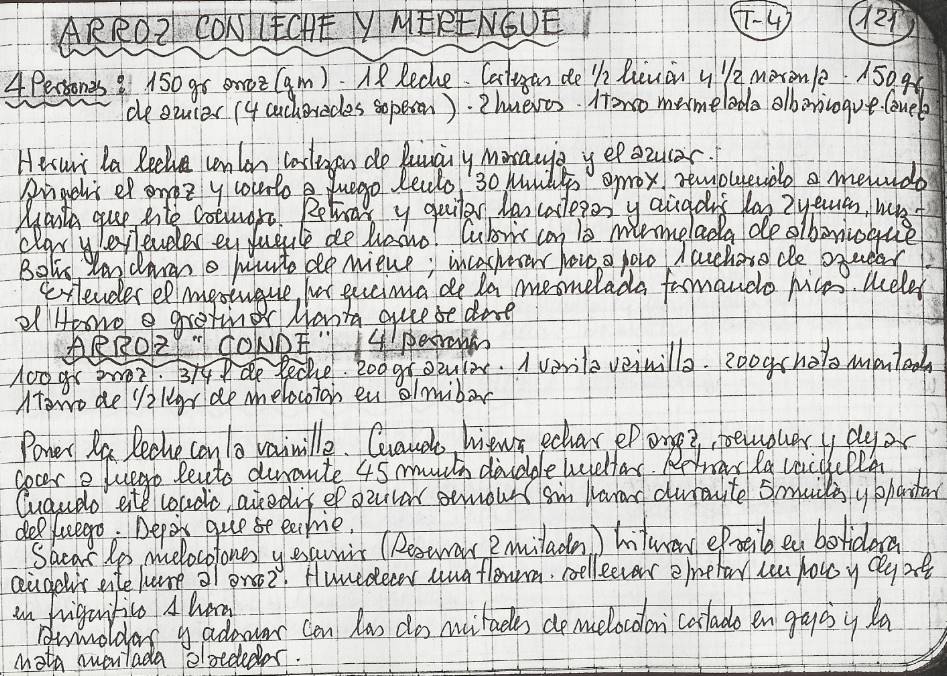 ARROZ CON LECHE Y MERENGUE T-4 121
4 Personas: 150 gr arroz (gm). 1 l leche. Cortezas de 1/2 limón y 1/2 naranja. 150 gr
de azucar (4 cucharadas soperas). 2 huevos. 1 Tarro mermelada albaricoque. Canela
Hervir la leche con las cortezas de limón y naranja y el azucar.
Añadir el arroz y cocerlo a fuego lento, 30 minutos aprox. removiendo a menudo
hasta que esté cremoso. Retirar y quitar las cortezas y añadir las 2 yemas, mez-
clar y extender en fuente de horno. Cubrir con la mermelada de albaricoque
Batir las claras a punto de nieve; incorporar poco a poco 1 cuchara de azucar
extender el merengue por encima de la mermelada formando picos. Meter
al Horno a gratinar hasta que se dore
ARROZ "CONDE" 4 personas
100 gr arroz. 3/4 l de leche. 200 gr azucar. 1 varita vainilla. 200 gr nata montada
1 Tarro de 1/2 kgr de melocotón en almibar
Poner la leche con la vainilla. Cuando hierva echar el arroz, remover y dejar
cocer a fuego lento durante 45 minutos dándole vueltas. Retirar la vainilla
Cuando esté cocido, añadir el azucar remover sin parar durante 5 minutos y apartar
del fuego. Dejar que se enfrie.
Sacar los melocotones y escurrir (Reservar 2 mitades) triturar el resto en batidora
añadir este pure al arroz. Humedecer una flanera. rellenar apretar un poco y dejarlo
en frigorifico 1 hora
Desmoldar y adornar con las dos mitades de melocotón cortado en gajos y la
nata montada alrededor.